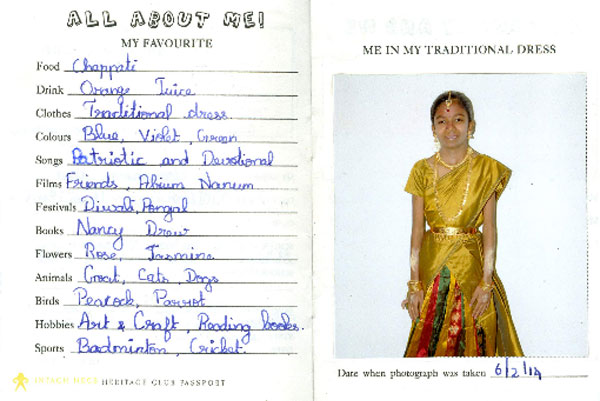 ALL ABOUT ME!
MY FAVOURITE
Food Chappati
Drink Orange Juice
Clothes Traditional dress
Colours Blue, Violet, Green
Songs Patriotic and Devotional
Films Friends, Abium Nanum
Festivals Diwali, Pongal
Books Nancy Drew
Flowers Rose, Jasmine
Animals Goat, Cats, Dogs
Birds Peacock, Parrot
Hobbies Art & Craft, Reading books.
Sports Badminton, Cricket.
HERITAGE CLUB PASSPORT
ME IN MY TRADITIONAL DRESS
Date when photograph was taken 6/2/14